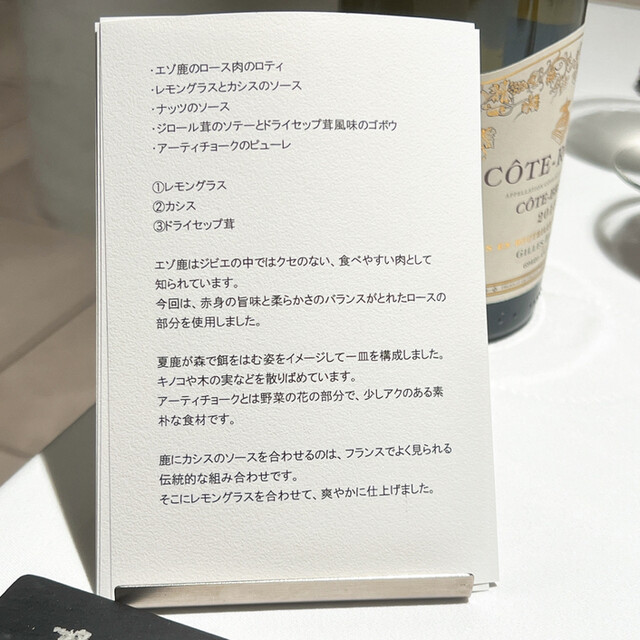 ・エゾ鹿のロース肉のロティ
・レモングラスとカシスのソース
・ナッツのソース
・ジロール茸のソテーとドライセップ茸風味のゴボウ
・アーティチョークのピューレ
①レモングラス
②カシス
③ドライセップ茸
エゾ鹿はジビエの中ではクセのない、食べやすい肉として
知られています。
今回は、赤身の旨味と柔らかさのバランスがとれたロースの
部分を使用しました。
夏鹿が森で餌をはむ姿をイメージして一皿を構成しました。
キノコや木の実などを散りばめています。
アーティチョークとは野菜の花の部分で、少しアクのある素
朴な食材です。
鹿にカシスのソースを合わせるのは、フランスでよく見られる
伝統的な組み合わせです。
そこにレモングラスを合わせて、爽やかに仕上げました。
CÔTE-R
CÔTE-R
GILLES